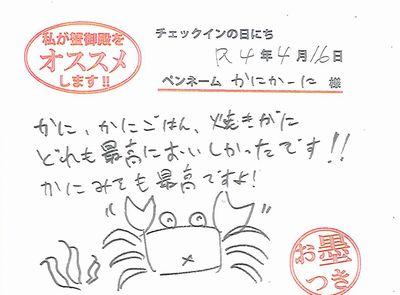 私が蟹御殿を
オススメ
します!!
チェックインの日にち
R4年4月16日
ペンネーム かにかーに 様
かに、かにごはん、焼きがに
どれも最高においしかったです!!
かにみそも最高ですよ!
お墨
つき